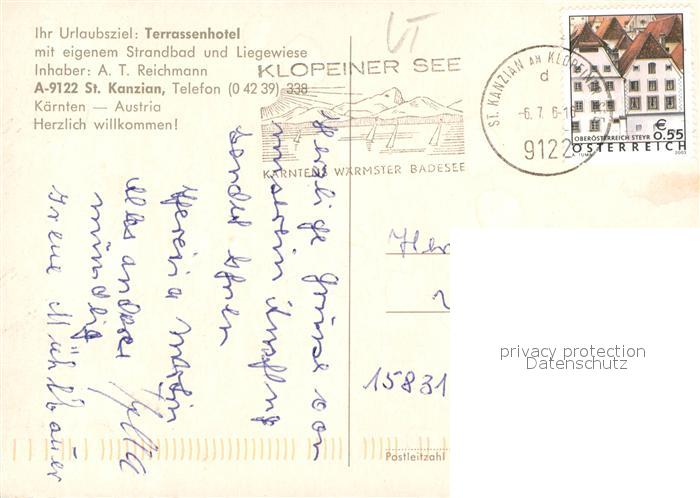 Ihr Urlaubsziel: Terrassenhotel
mit eigenem Strandbad und Liegewiese
Inhaber: A. T. Reichmann
A-9122 St. Kanzian, Telefon (0 42 39) 338
Kärnten — Austria
Herzlich willkommen!
KLOPEINER SEE
KÄRNTENS WÄRMSTER BADESEE
ST. KANZIAN AM KLOPEINER
d
-6. 7.
9122
€ 0.55
OBERÖSTERREICH STEYR
A. TUMA
2003
ÖSTERREICH
Herzliche Grüsse von
unserem
sendet Ihnen
alles andere
mündlich
Irene Mühlbauer
15831
Postleitzahl
privacy protection
Datenschutz